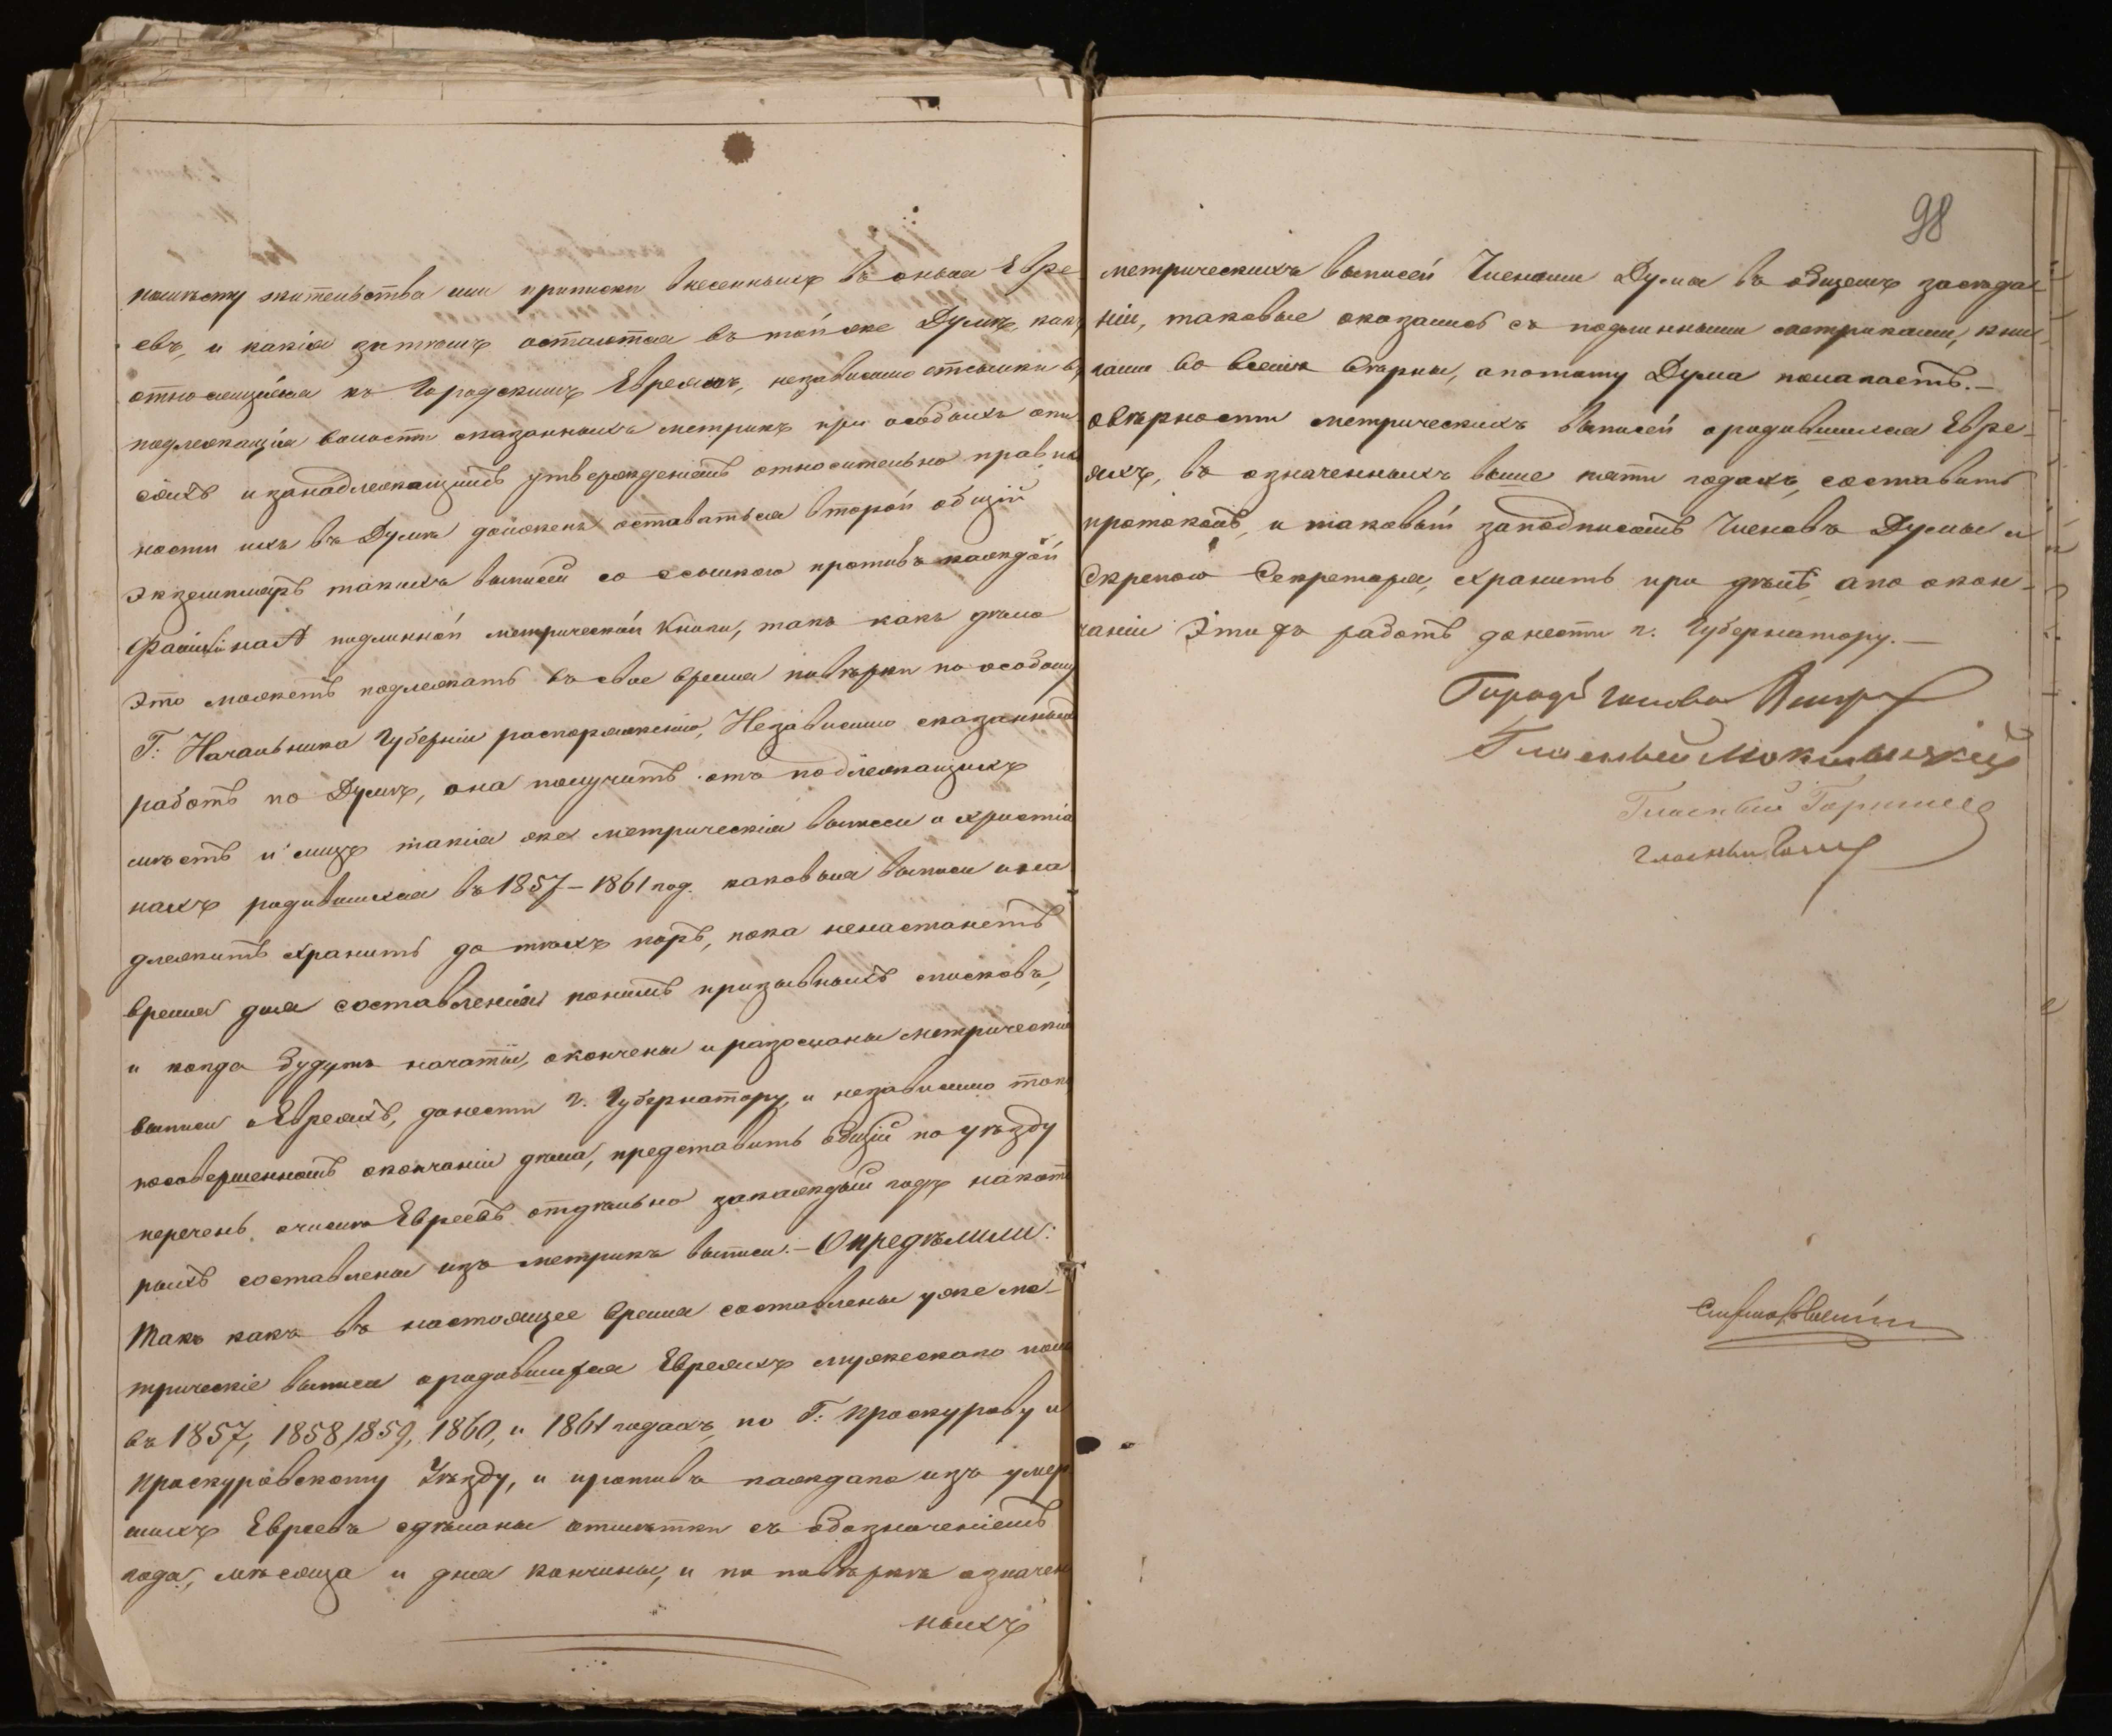 помѣсту жительства или приписки внесенныхъ въ оныя Евре
евъ, и какія затѣмъ остаются въ той же Думѣ какъ
относящіяся къ Городскимъ Евреямъ, независимо отсылки въ
подлежащія волости сказанныхъ метрикъ при особыхъ опи
сяхъ и занадлежащимъ утвержденіемъ относительно правиль
ности ихъ въ Думѣ долженъ оставаться второй общій
экземпляръ такихъ выписей со ссылкою противъ каждой
на № подлинной метрической книги, такъ какъ дѣло
это можетъ подлежать въ свое время повѣрки по особому
Г: Начальника Губерніи распоряженію, Независимо сказанныхъ
работъ по Думѣ, она получитъ отъ подлежащихъ
мѣстъ и лицъ такія же метрическія выписи о христіа
нахъ родившихся въ 1857–1861 год. каковыя выписи и на
длежитъ хранить до тѣхъ поръ, пока ненастанетъ
время для составленія понимъ призывныхъ списковъ,
и когда будутъ начаты, окончены и разосланы метрическія
выписи о Евреяхъ, донести г. Губернатору, и независимо того
посовершенномъ окончаніи дѣла, представить общій по уѣзду
перечень о числѣ Евреевъ отдѣльно закаждый годъ накото
рыхъ составлены изъ метрикъ выписи.– Опредѣлили:
Такъ какъ въ настоящее время составлены уже ме-
трическіе выписи ородившихся Евреяхъ мужескаго пола
въ 1857, 1858, 1859, 1860, и 1861 годахъ, по Г: Проскурову и
Проскуровскому Уѣзду, и противъ каждаго изъ умер
шихъ Евреевъ сдѣланы отмѣтки съ обозначеніемъ
года, мѣсяца и дня кончины, и по повѣркѣ означен
ныхъ
98
метрическихъ выписей Членами Думы въ общемъ засѣда-
ніи, таковые оказались съ подлинными метриками, кни
гами во всемъ вѣрны, апотому Дума полагаетъ.–
овѣрности метрическихъ выписей ородившихся Евре-
яхъ, въ означенныхъ выше пяти годахъ, составить
протоколъ, и таковый заподписомъ Членовъ Думы и
Скрепою Секретаря, хранить при дѣлѣ, апо окон-
чаніи этихъ работъ донести г. Губернатору.–
Городс Голова
Гласный
Гласный
Гласный